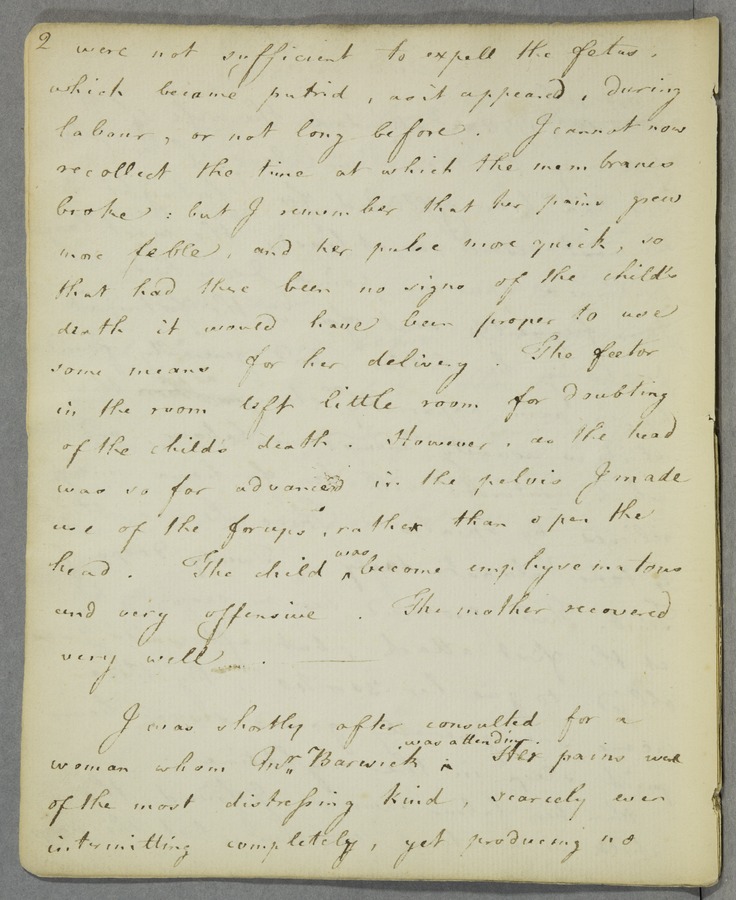 2 were not sufficient to expell the fetus,
which became putrid, as it appeared, during
labour, or not long before. I cannot now
recollect the time at which the membranes
broke: but I remember that her pains grew
more feble, and her pulse more quick, so
that had there been no signs of the child's
death it would have been proper to use
some means for her delivery. The foetor
in the room left little room for doubting
of the child's death. However, as the head
was so far advanced in the pelvis I made
use of the forceps, rather than open the
head. The child ‸was become emphysematous
and very offensive. The mother recovered
very well.
I was shortly after consulted for a
woman whom Mr. Barwick ‸was attending. Her pains were
of the most distressing kind, scarcely ever
intermitting completely, yet producing no